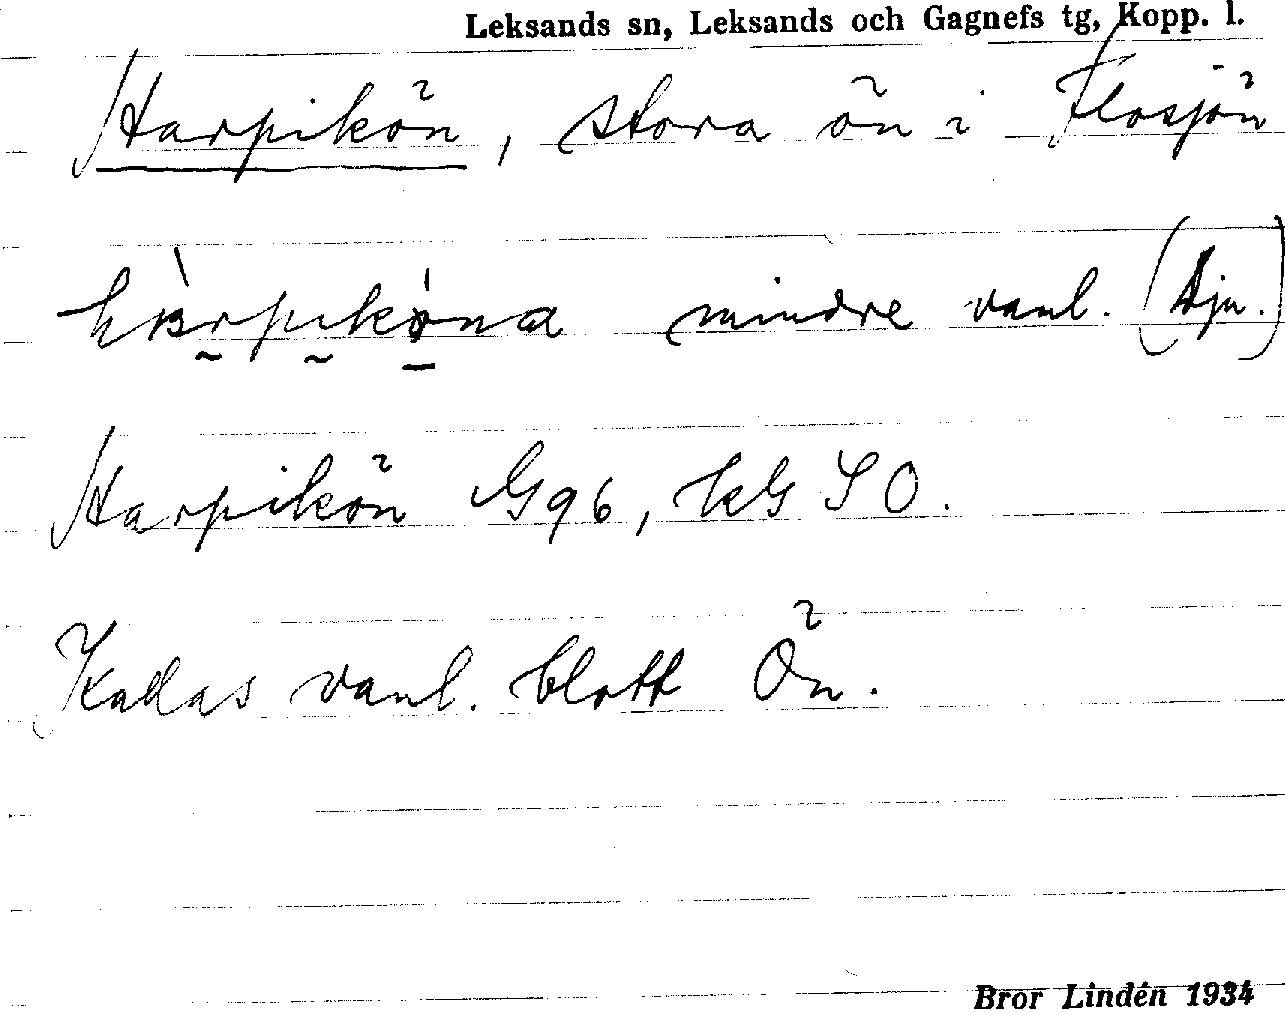 Leksands sn, Leksands och Gagnefs tg, Kopp. l.
Harpikön, stora ön i Flosjön
mindre vanl. (Djn.)
Harpikön G96, kG SO.
Kallas vanl. blott Ön.
Bror Lindén 1934